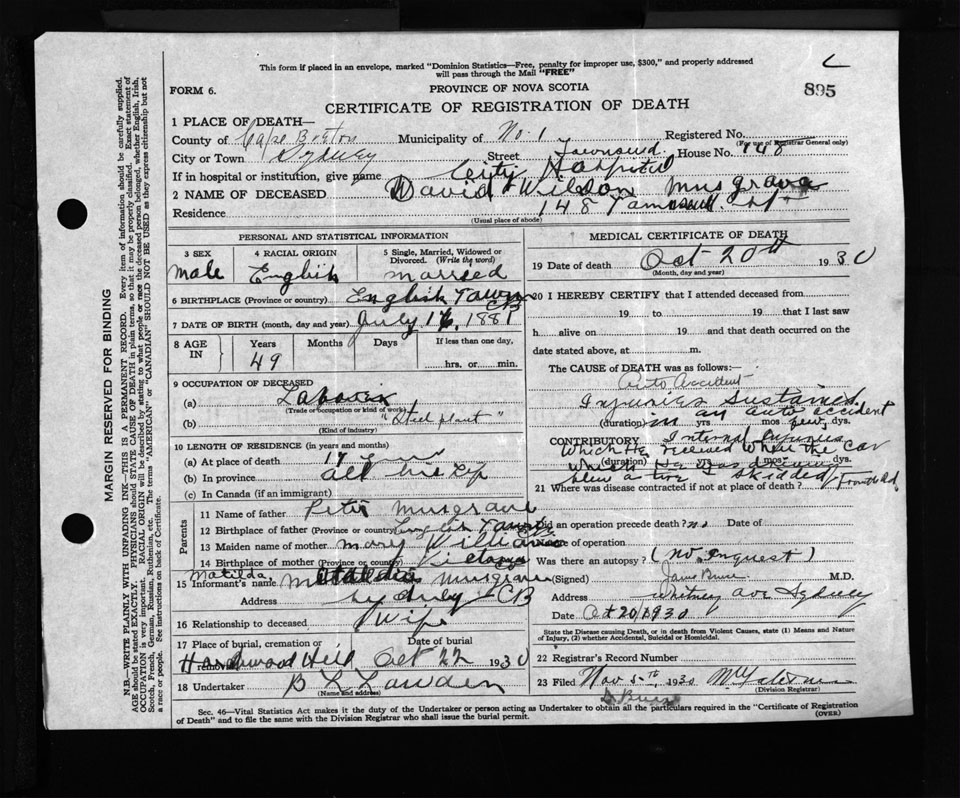 This form if placed in an envelope, marked "Dominion Statistics—Free, penalty for improper use, $300," and properly addressed
will pass through the Mail "FREE"
FORM 6.
PROVINCE OF NOVA SCOTIA
895
CERTIFICATE OF REGISTRATION OF DEATH
1 PLACE OF DEATH—
County of Cape Breton Municipality of No. 1 Registered No.
(For use of Registrar General only)
City or Town Sydney Street Townsend House No. 148
If in hospital or institution, give name City Hospital
2 NAME OF DECEASED David Wilson Musgrave
Residence 148 Townsend
(Usual place of abode)
PERSONAL AND STATISTICAL INFORMATION
3 SEX
4 RACIAL ORIGIN
5 Single, Married, Widowed or Divorced. (Write the word)
Male English married
6 BIRTHPLACE (Province or country) English Town CB
7 DATE OF BIRTH (month, day and year) July 1881
8 AGE IN
Years Months Days If less than one day,
49
hrs. or min.
9 OCCUPATION OF DECEASED
(a) Laborer
(Trade or occupation or kind of work)
(b) "Steel plant"
(Kind of industry)
10 LENGTH OF RESIDENCE (in years and months)
(a) At place of death 17
(b) In province all his
(c) In Canada (if an immigrant)
Parents
11 Name of father Peter Musgrave
12 Birthplace of father (Province or country) English Town CB
13 Maiden name of mother Mary Williams
14 Birthplace of mother (Province or country) Victoria
Matilda
15 Informant's name Matilda Musgrave
Address Sydney CB
16 Relationship to deceased Wife
17 Place of burial, cremation or removal
Date of burial
Hardwood Hill Oct 22 1930
18 Undertaker
(Name and address)
MEDICAL CERTIFICATE OF DEATH
19 Date of death Oct 20th 1930
(Month, day and year)
20 I HEREBY CERTIFY that I attended deceased from
19 to 19 that I last saw
h alive on 19 and that death occurred on the
date stated above, at m.
The CAUSE of DEATH was as follows:—
Auto Accident
Injuries Sustained
(duration) in an auto accident yrs mos dys.
CONTRIBUTORY Internal injuries
Which He received when the car
(duration) yrs mos dys.
which He was driving
blew a tire skidded from the Rd.
21 Where was disease contracted if not at place of death?
Did an operation precede death? no Date of
Nature of operation
Was there an autopsy? (No inquest)
(Signed) James Bruce M.D.
Address Whitney Ave Sydney
Date Oct 20/1930
State the Disease causing Death, or in death from Violent Causes, state (1) Means and Nature
of Injury, (2) whether Accidental, Suicidal or Homicidal.
22 Registrar's Record Number
23 Filed Nov 5th, 1930
(Division Registrar)
Sec. 46—Vital Statistics Act makes it the duty of the Undertaker or person acting as Undertaker to obtain all the particulars required in the "Certificate of Registration
of Death" and to file the same with the Division Registrar who shall issue the burial permit.
(OVER)
MARGIN RESERVED FOR BINDING
N.B.—WRITE PLAINLY WITH UNFADING INK—THIS IS A PERMANENT RECORD. Every item of information should be carefully supplied.
AGE should be stated EXACTLY. PHYSICIANS should STATE CAUSE OF DEATH in plain terms, so that it may be properly classified. Exact statement of
OCCUPATION is very important. RACIAL ORIGIN will be described by stating to what people or race the deceased person belonged, whether English, Irish,
Scotch, French, German, Russian, Ruthenian, etc. The terms "AMERICAN" or "CANADIAN" SHOULD NOT BE USED as they express citizenship but not
a race or people. See instructions on back of Certificate.